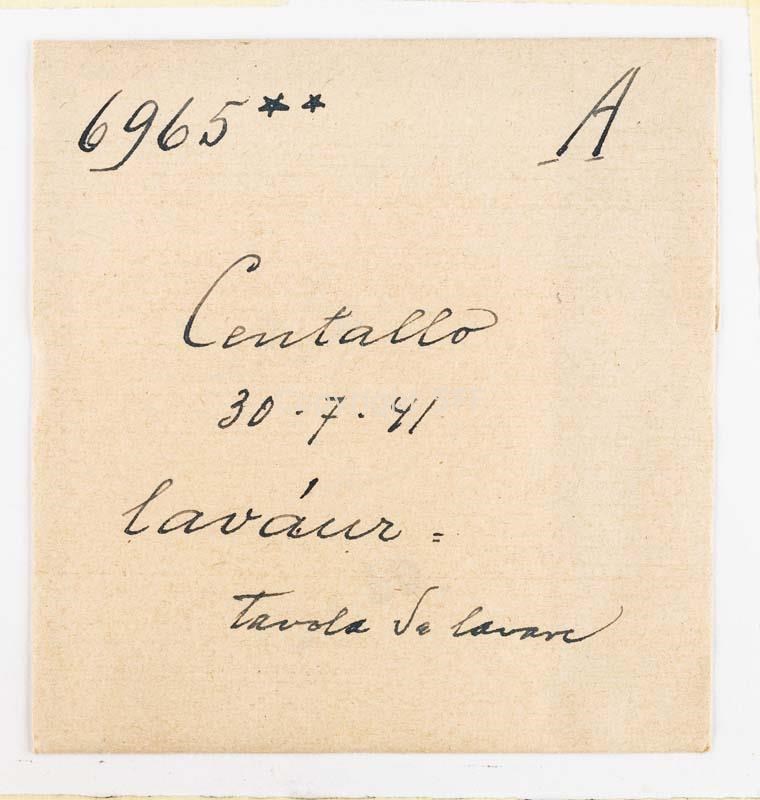 6965** A
Centallo
30.7.41
laváur =
tavola da lavare